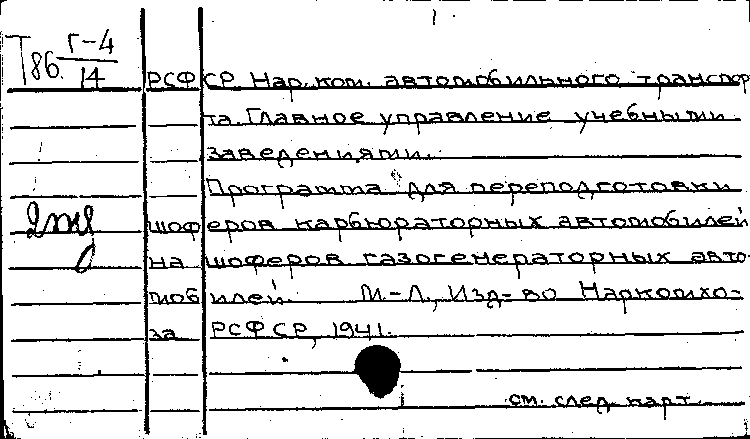 Т86 Г-4
14
РСФСР. Нар.ком. автомобильного транспор
та. Главное управление учебными
заведениями.
Программа для переподготовки
шоферов карбюраторных автомобилей
на шоферов газогенераторных авто-
мобилей. М.-Л., Изд-во Наркомхо-
за РСФСР, 1941.
см. след. карт.